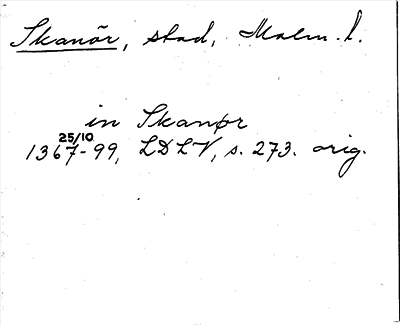 Skanör, stad, Malm. l.
in Skanør
25/10
1367-99, LDLV, s. 273. orig.